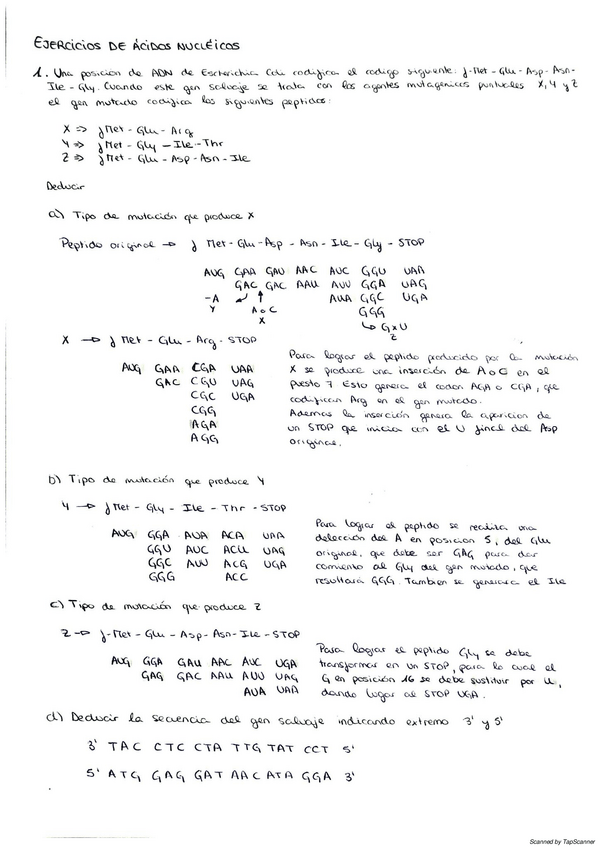 EJERCICIOS DE ÁCIDOS NUCLÉICOS
1. Una posicion de ADN de Escherichia Coli codifica el codigo siguiente: f-Met-Glu-Asp-Asn-
Ile-Gly. Cuando este gen salvaje se trata con los agentes mutagenicos puntuales X, Y y Z
el gen mutado codifica los siguientes peptidos:
X => fMet-Glu-Arg
Y => fMet-Gly-Ile-Thr
Z => fMet-Glu-Asp-Asn-Ile
Deducir
a) Tipo de mutación que produce X
Peptido original → f Met-Glu-Asp-Asn-Ile-Gly-STOP
AUG GAA GAU AAC AUC GGU UAA
GAG GAC AAU AUU GGA UAG
-A AUA GGC UGA
Y A o C GGG
X ↳ G x U
Z
X → f Met-Glu-Arg-STOP
AUG GAA CGA UAA
GAC CGU UAG
CGC UGA
CGG
AGA
AGG
Para lograr el peptido producido por la mutación
X se produce una inserción de A o C en el
puesto 7. Esto genera el codon AGA o CGA, que
codifican Arg en el gen mutado.
Ademas la inserción genera la aparicion de
un STOP que inicia con el U final del Asp
original.
b) Tipo de mutación que produce Y
Y → f Met-Gly-Ile-Thr-STOP
AUG GGA AUA ACA UAA
GGU AUC ACU UAG
GGC AUU ACG UGA
GGG ACC
Para lograr el peptido se realita una
delección del A en posicion 5, del Glu
original, que debe ser GAG para dar
comiento al Gly del gen mutado, que
resultará GGG. Tambien se generara el Ile
c) Tipo de mutación que produce Z
Z → f-Met-Glu-Asp-Asn-Ile-STOP
AUG GGA GAU AAC AUC UGA
GAG GAC AAU AUU UAG
AUA UAA
Para lograr el peptido Gly se debe
transformar en un STOP, para lo cual el
G en posición 16 se debe sustituir por U,
dando lugar al STOP UGA.
d) Deducir la secuencia del gen salvaje indicando extremo 3' y 5'
3' TAC CTC CTA TTG TAT CCT 5'
5' ATG GAG GAT AAC ATA GGA 3'
Scanned by TapScanner